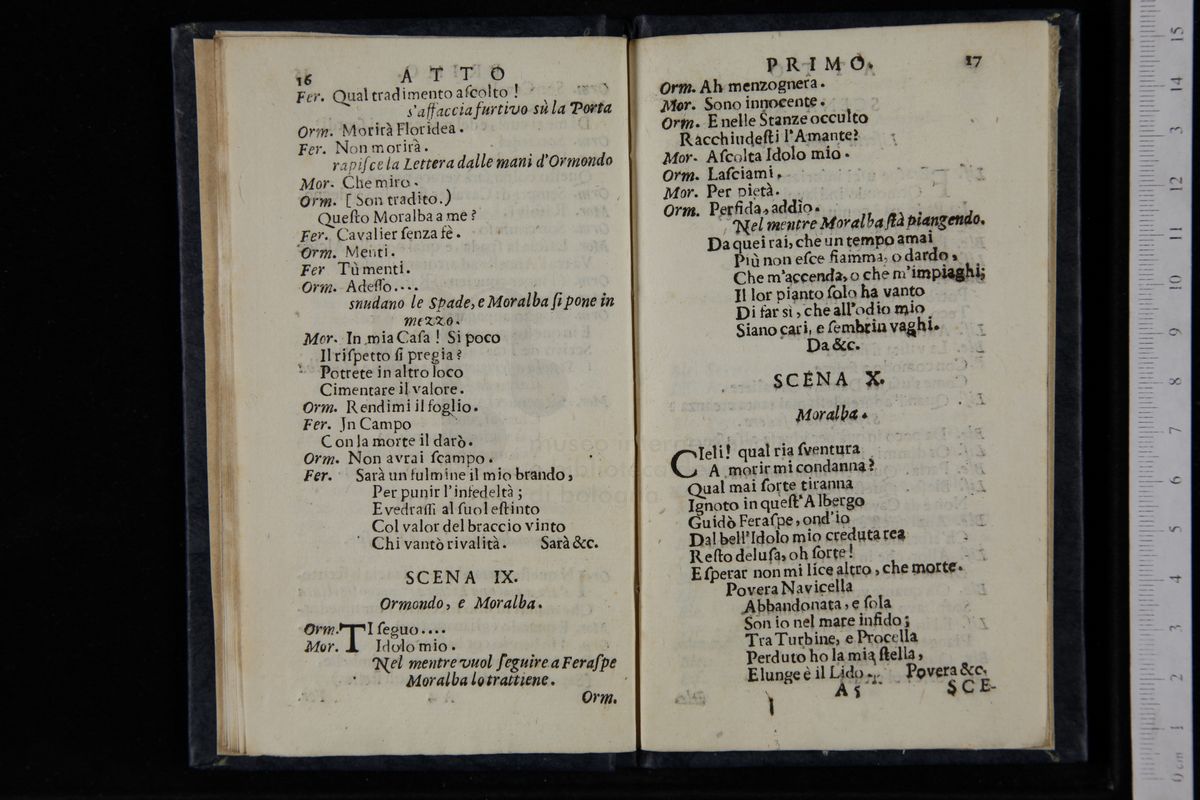 16 ATTO
Fer. Qual tradimento aſcolto !
s'affaccia furtivo sù la Porta
Orm. Morirà Floridea.
Fer. Non morirà.
rapiſce la Lettera dalle mani d'Ormondo
Mor. Che miro.
Orm. [ Son tradito.)
Queſto Moralba a me ?
Fer. Cavalier ſenza fè.
Orm. Menti.
Fer Tù menti.
Orm. Adeſſo....
snudano le Spade, e Moralba ſi pone in
mezzo.
Mor. In mia Caſa ! Sì poco
Il riſpetto ſi pregia ?
Potrete in altro loco
Cimentare il valore.
Orm. Rendimi il foglio.
Fer. Jn Campo
Con la morte il darò.
Orm. Non avrai ſcampo.
Fer. Sarà un fulmine il mio brando,
Per punir l'infedeltà ;
E vedraſſi al ſuol eſtinto
Col valor del braccio vinto
Chi vantò rivalità. Sarà &c.
SCENA IX.
Ormondo, e Moralba.
Orm. TI ſeguo....
Mor. Idolo mio.
Nel mentre vuol ſeguire a Feraſpe
Moralba lo trattiene.
Orm.
PRIMO. 17
Orm. Ah menzognera.
Mor. Sono innocente.
Orm. E nelle Stanze occulto
Racchiudeſti l'Amante?
Mor. Aſcolta Idolo mio.
Orm. Laſciami.
Mor. Per pietà.
Orm. Perfida, addio.
Nel mentre Moralba ſtà piangendo.
Da quei rai, che un tempo amai
Più non eſce fiamma, o dardo,
Che m'accenda, o che m'impiaghi;
Il lor pianto ſolo ha vanto
Di far sì, che all'odio mio
Siano cari, e ſembrin vaghi.
Da &c.
SCENA X.
Moralba.
CIeli! qual ria ſventura
A morir mi condanna?
Qual mai ſorte tiranna
Ignoto in queſt'Albergo
Guidò Feraſpe, ond'io
Dal bell'Idolo mio creduta rea
Reſto deluſa, oh ſorte!
E ſperar non mi lice altro, che morte.
Povera Navicella
Abbandonata, e ſola
Son io nel mare infido;
Tra Turbine, e Procella
Perduto ho la mia ſtella,
E lunge è il Lido. Povera &c.
A 5 SCE-